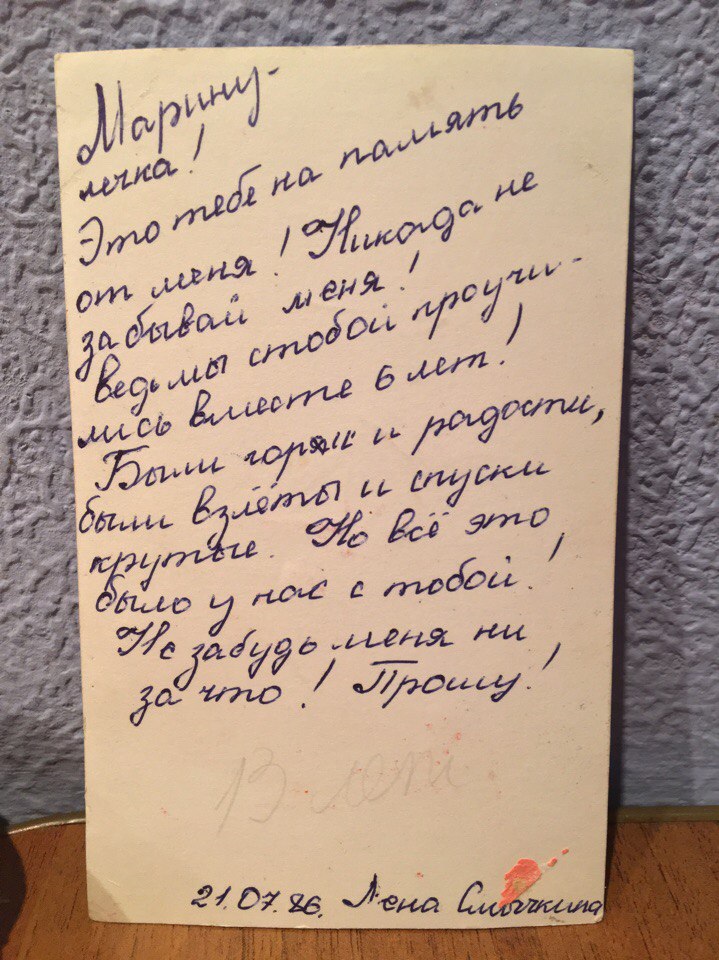 Марину-
лечка!
Это тебе на память
от меня! Никогда не
забывай меня!
Ведь мы стобой проучи-
лись вместе 6 лет!
Были горя и радости,
были взлёты и спуски
крутые. Но всё это
было у нас с тобой!
Не забудь меня ни
за что! Прошу!
13 лет
21.07.86. Лена Смычкина